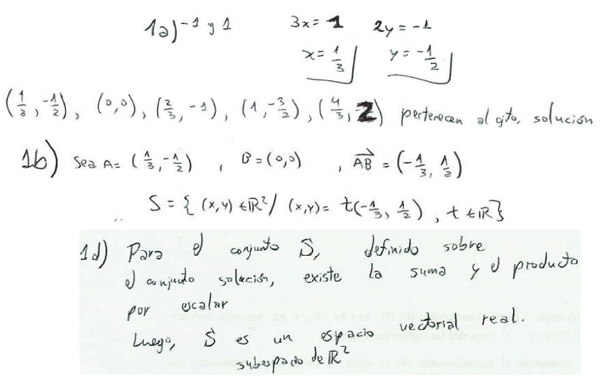 1a) -1 y 1 3x = 1 2y = -1
x = 1/3 y = -1/2
(1/3, -1/2), (0,0), (2/3, -1), (1, -3/2), (4/3, -2) pertenecen al cjto. solución
1b) Sea A = (1/3, -1/2), B = (0,0), AB = (-1/3, 1/2)
S = { (x,y) ∈ ℝ² / (x,y) = t(-1/3, 1/2), t ∈ ℝ }
1d) Para el conjunto S, definido sobre
el conjunto solución, existe la suma y el producto
por escalar
Luego, S es un espacio vectorial real.
subespacio de ℝ²